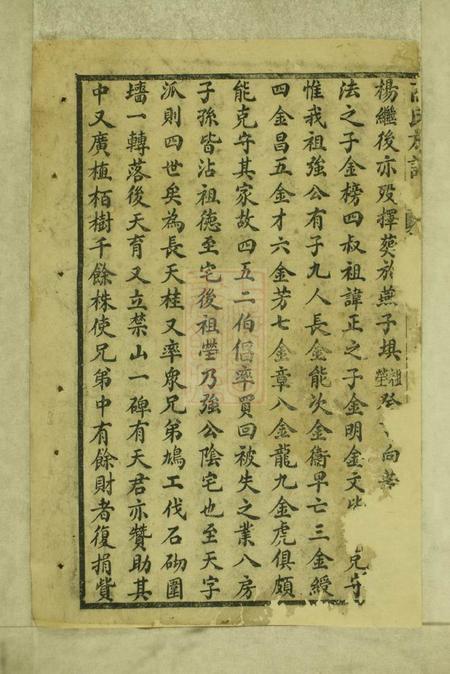 楊繼後亦歿擇葵於燕子填祖塋 向
法之子金榜四叔祖諱正之子金明金文 兄守
惟我祖強公有子九人長金能次金衛早亡三金綬
四金昌五金才六金芳七金章八金龍九金虎俱頗
能克守其家故四五二伯倡率買回被失之業八房
子孫皆沾祖德至宅後祖塋乃強公陰宅也至天字
派則四世矣為長天桂又率衆兄弟鳩工伐石砌圍
墻一轉落後天育又立禁山一碑有天君亦贊助其
中又廣植栢樹千餘株使兄弟中有餘財者復捐貲